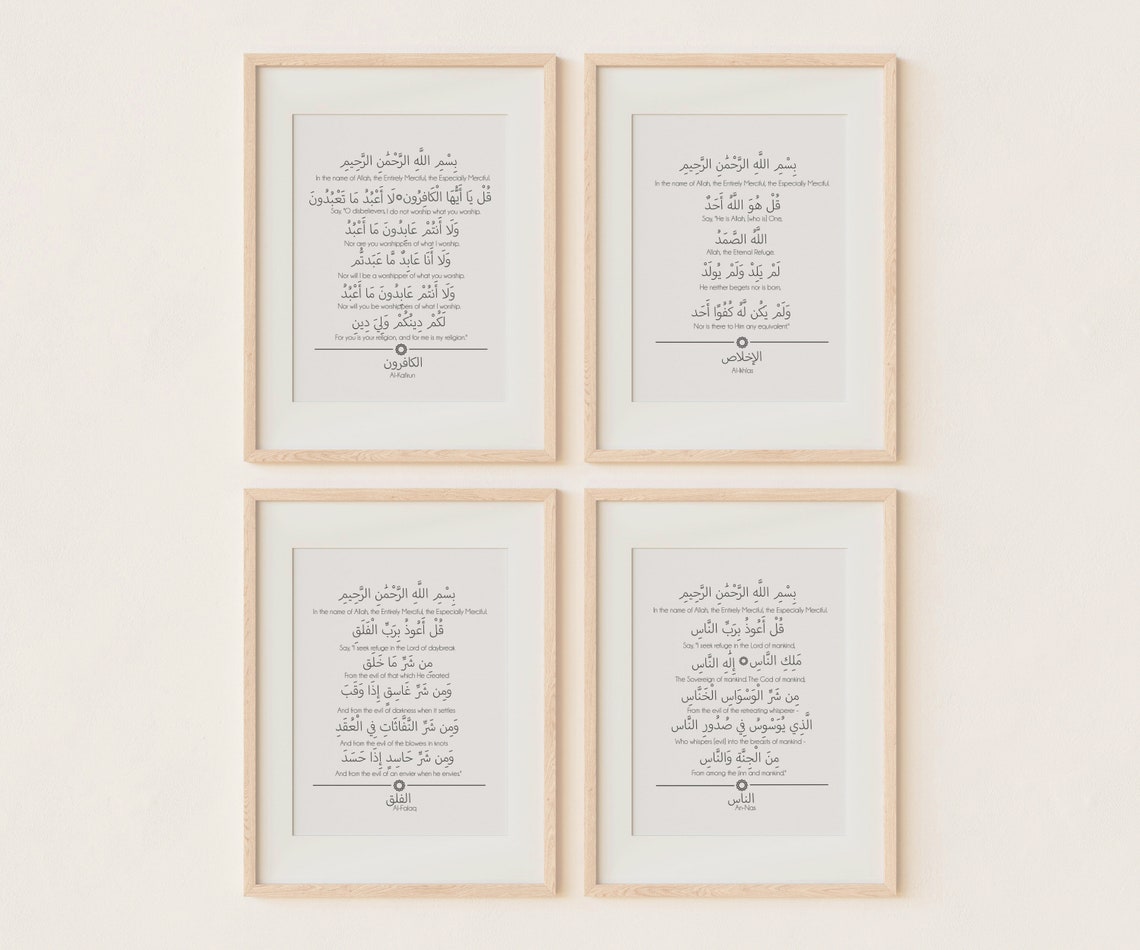 بِسْمِ اللَّهِ الرَّحْمَٰنِ الرَّحِيمِ
In the name of Allah, the Entirely Merciful, the Especially Merciful.
قُلْ يَا أَيُّهَا الْكَافِرُونَ لَا أَعْبُدُ مَا تَعْبُدُونَ
Say, "O disbelievers, I do not worship what you worship.
وَلَا أَنتُمْ عَابِدُونَ مَا أَعْبُدُ
Nor are you worshippers of what I worship.
وَلَا أَنَا عَابِدٌ مَّا عَبَدتُّمْ
Nor will I be a worshipper of what you worship.
وَلَا أَنتُمْ عَابِدُونَ مَا أَعْبُدُ
Nor will you be worshippers of what I worship.
لَكُمْ دِينُكُمْ وَلِيَ دِينِ
For you is your religion, and for me is my religion."
الكافرون
Al-Kafirun
بِسْمِ اللَّهِ الرَّحْمَٰنِ الرَّحِيمِ
In the name of Allah, the Entirely Merciful, the Especially Merciful.
قُلْ هُوَ اللَّهُ أَحَدٌ
Say, "He is Allah, [who is] One,
اللَّهُ الصَّمَدُ
Allah, the Eternal Refuge.
لَمْ يَلِدْ وَلَمْ يُولَدْ
He neither begets nor is born,
وَلَمْ يَكُن لَّهُ كُفُوًا أَحَد
Nor is there to Him any equivalent."
الإخلاص
Al-Ikhlas
بِسْمِ اللَّهِ الرَّحْمَٰنِ الرَّحِيمِ
In the name of Allah, the Entirely Merciful, the Especially Merciful.
قُلْ أَعُوذُ بِرَبِّ الْفَلَقِ
Say, "I seek refuge in the Lord of daybreak
مِن شَرِّ مَا خَلَقَ
From the evil of that which He created
وَمِن شَرِّ غَاسِقٍ إِذَا وَقَبَ
And from the evil of darkness when it settles
وَمِن شَرِّ النَّفَّاثَاتِ فِي الْعُقَدِ
And from the evil of the blowers in knots
وَمِن شَرِّ حَاسِدٍ إِذَا حَسَدَ
And from the evil of an envier when he envies."
الفلق
Al-Falaq
بِسْمِ اللَّهِ الرَّحْمَٰنِ الرَّحِيمِ
In the name of Allah, the Entirely Merciful, the Especially Merciful.
قُلْ أَعُوذُ بِرَبِّ النَّاسِ
Say, "I seek refuge in the Lord of mankind,
مَلِكِ النَّاسِ إِلَٰهِ النَّاسِ
The Sovereign of mankind. The God of mankind,
مِن شَرِّ الْوَسْوَاسِ الْخَنَّاسِ
From the evil of the retreating whisperer -
الَّذِي يُوَسْوِسُ فِي صُدُورِ النَّاسِ
Who whispers [evil] into the breasts of mankind -
مِنَ الْجِنَّةِ وَالنَّاسِ
From among the jinn and mankind."
الناس
An-Nas